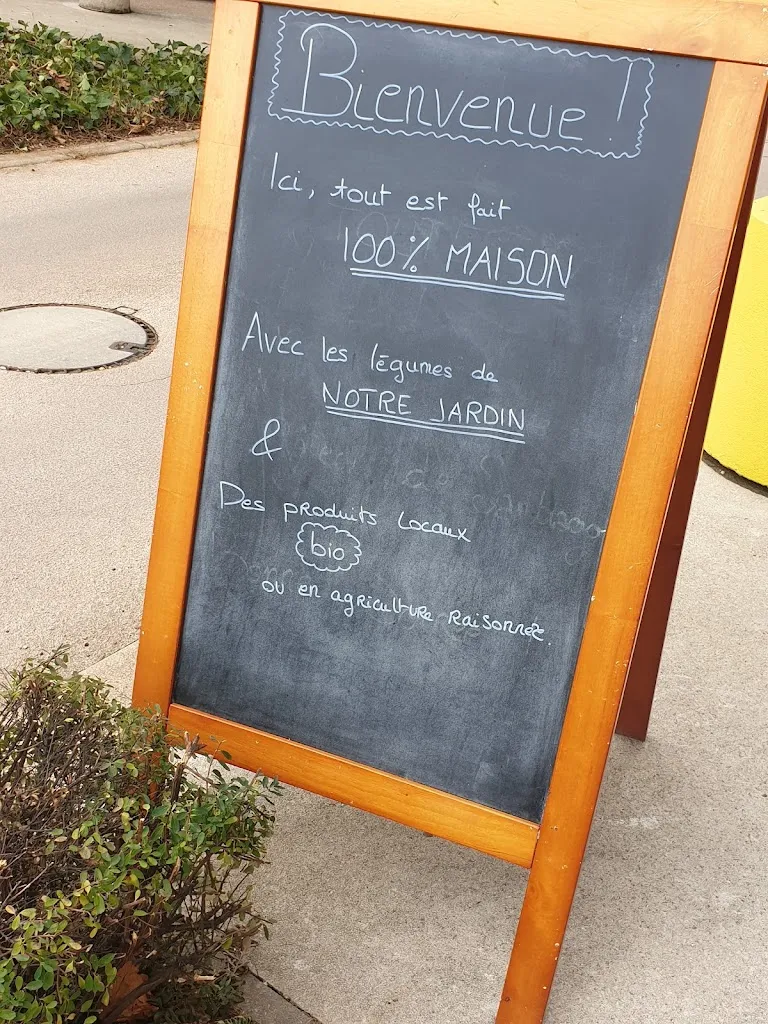 Bienvenue !
Ici, tout est fait
100% MAISON
Avec les légumes de
NOTRE JARDIN
&
Des produits locaux
bio
ou en agriculture raisonnée.